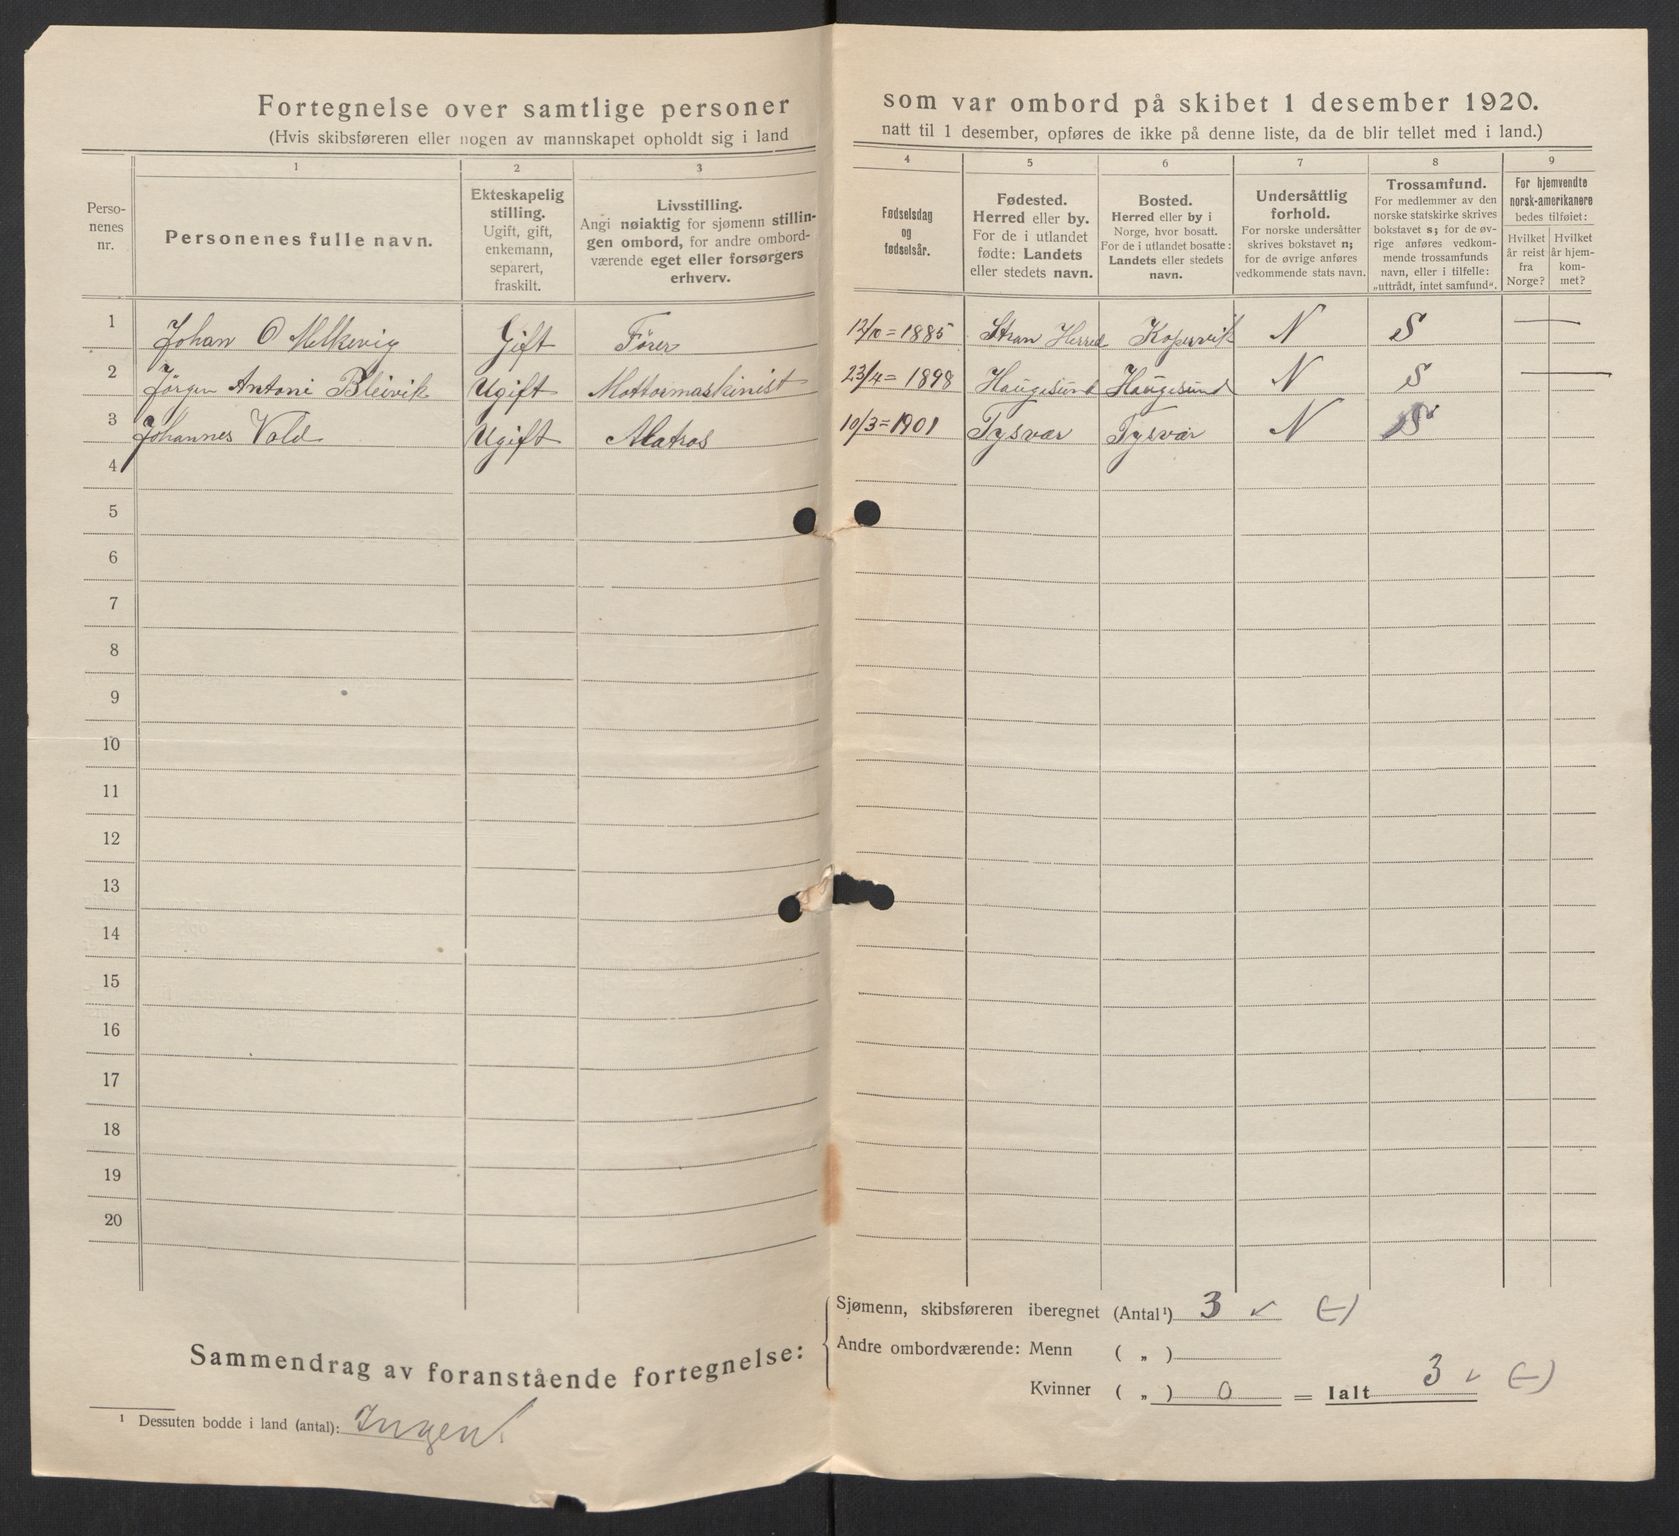 Fortegnelse over samtlige personer som var ombord på skibet 1 desember 1920.
(Hvis skibsføreren eller nogen av mannskapet opholdt sig i land natt til 1 desember, opføres de ikke på denne liste, da de blir tellet med i land.)
Perso-
nenes
nr.
1
Personenes fulle navn.
2
Ekteskapelig
stilling.
Ugift, gift,
enkemann,
separert,
fraskilt.
3
Livsstilling.
Angi nøiaktig for sjømenn stillin-
gen ombord, for andre ombord-
værende eget eller forsørgers
erhverv.
4
Fødselsdag
og
fødselsår.
5
Fødested.
Herred eller by.
For de i utlandet
fødte: Landets
eller stedets navn.
6
Bosted.
Herred eller by i
Norge, hvor bosatt.
For de i utlandet bosatte:
Landets eller stedets
navn.
7
Undersåttlig
forhold.
For norske undersåtter
skrives bokstavet n;
for de øvrige anføres
vedkommende stats navn.
8
Trossamfund.
For medlemmer av den
norske statskirke skrives
bokstavet s; for de øv-
rige anføres vedkom-
mende trossamfunds
navn, eller i tilfelle:
„uttrådt, intet samfund“.
9
For hjemvendte
norsk-amerikanere
bedes tilføiet:
Hvilket
år reist
fra
Norge?
Hvilket
år hjem-
kom-
met?
1 Johan O Melkevig Gift Fører 12/10=1885 Stran Herred Kopervik N S —
2 Jørgen Antoni Bleivik Ugift Mottormaskinist 23/4=1898 Haugesund Haugesund N S —
3 Johannes Vold Ugift Matros 10/3=1901 Tysvær Tysvær N S
4
5
6
7
8
9
10
11
12
13
14
15
16
17
18
19
20
Sammendrag av foranstående fortegnelse:
Sjømenn, skibsføreren iberegnet (Antal¹) 3 ✓ (-)
Andre ombordværende: Menn ( „ )
Kvinner ( „ ) 0 = Ialt 3 ✓ (-)
¹ Dessuten bodde i land (antal): Ingen.